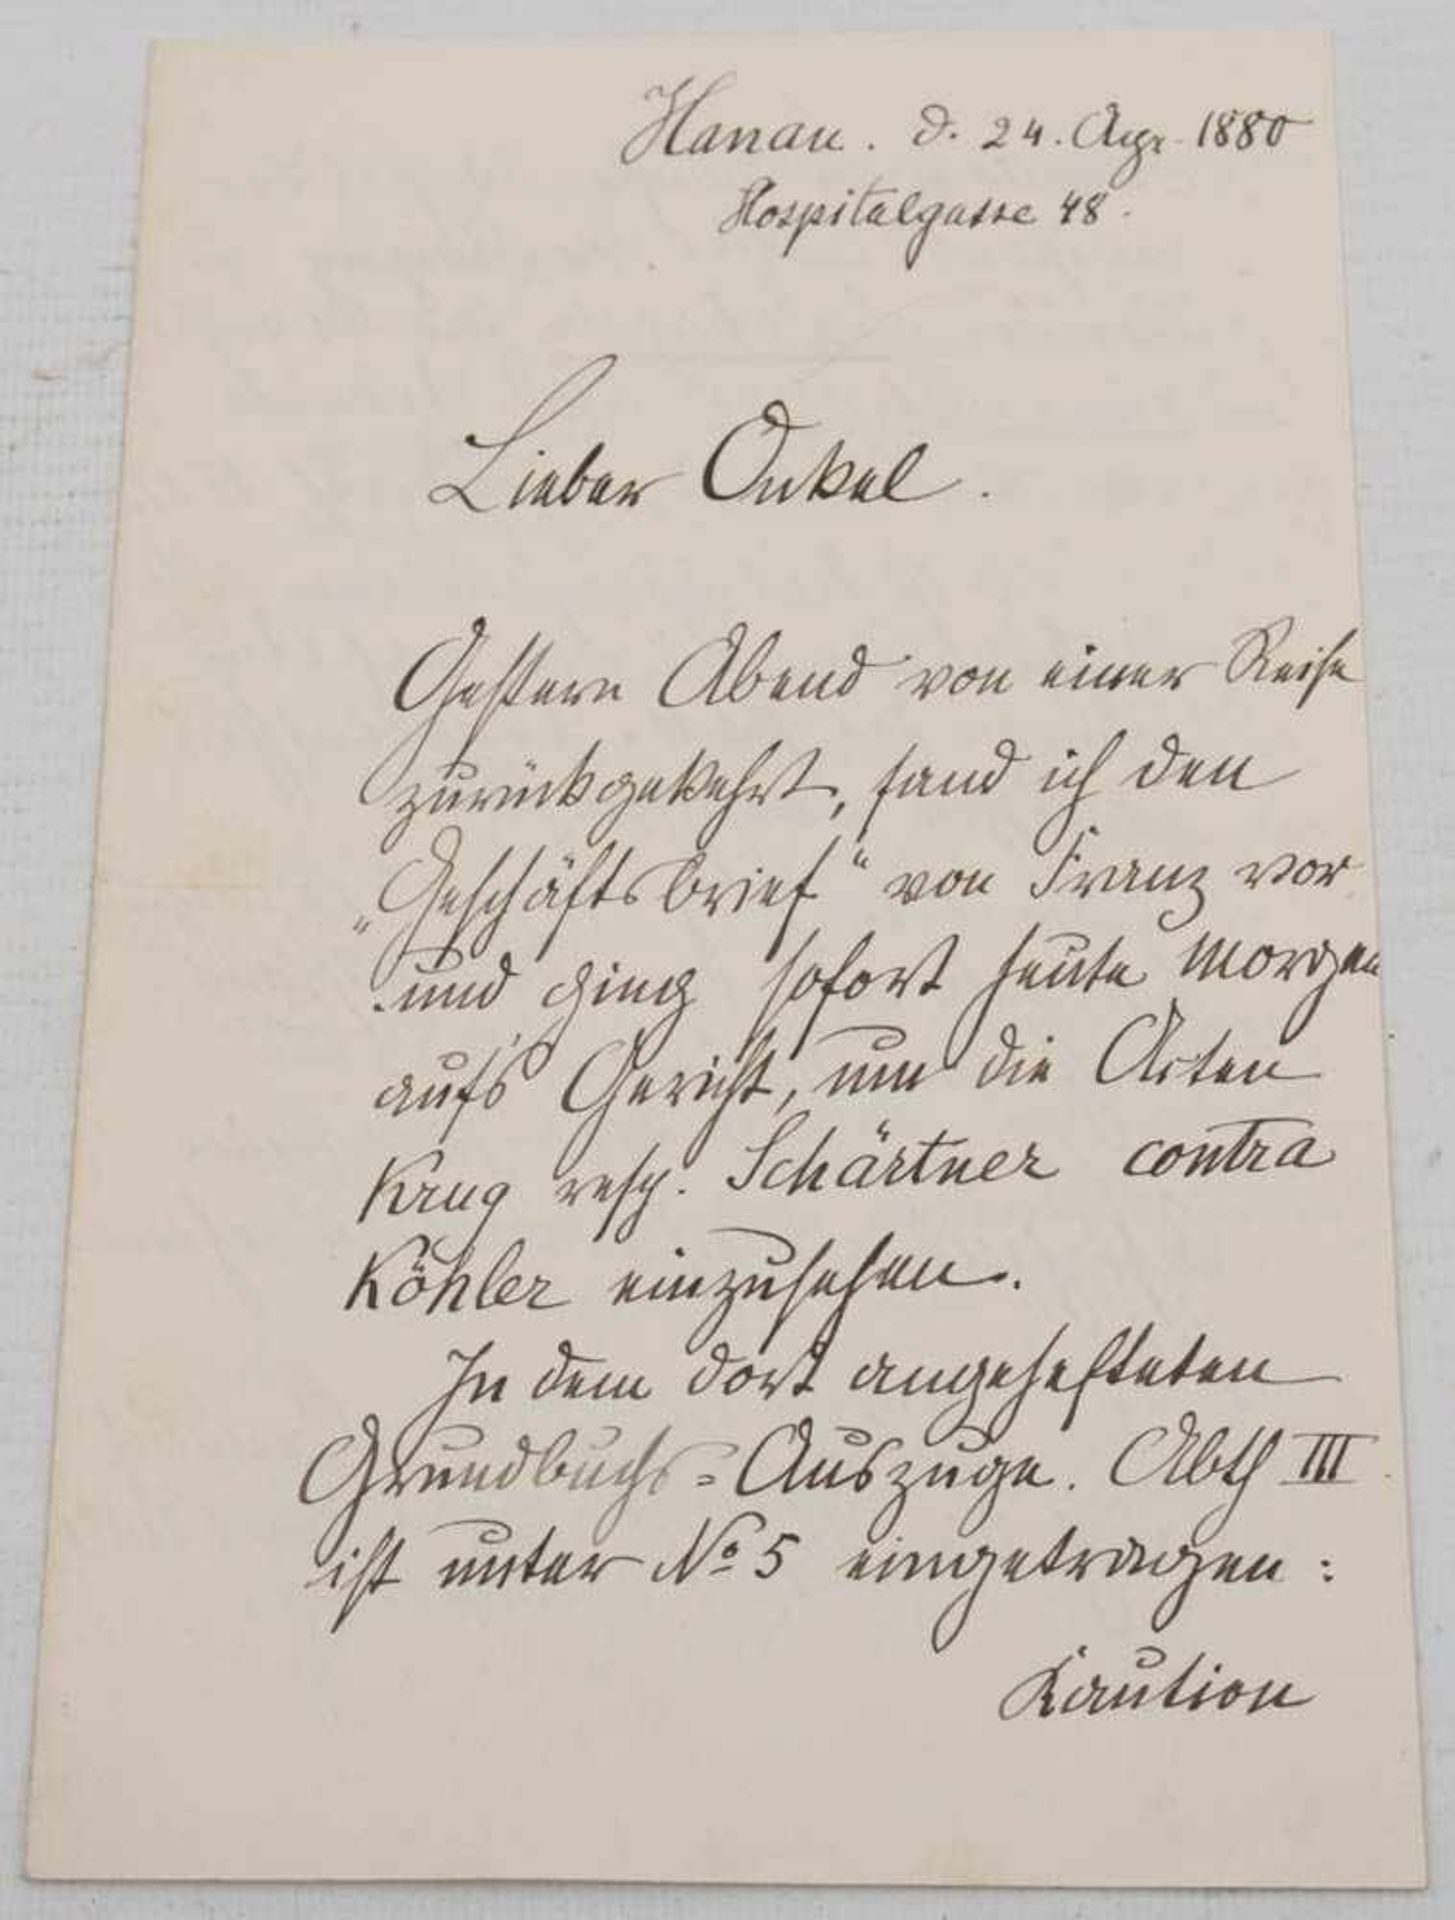 Hanau. d. 24. Apr. 1880
Hospitalgasse 48.
Lieber Onkel.
Gestern Abend von einer Reise
zurückgekehrt, fand ich den
„Geschäftsbrief“ von Franz vor
und ging sofort heute Morgen
aufs Gericht, um die Acten
Krug resp. Schärtner contra
Köhler einzusehen.
In dem dort angehefteten
Grundbuchs=Auszuge. Abth III
ist unter No 5 eingetragen:
Kaution